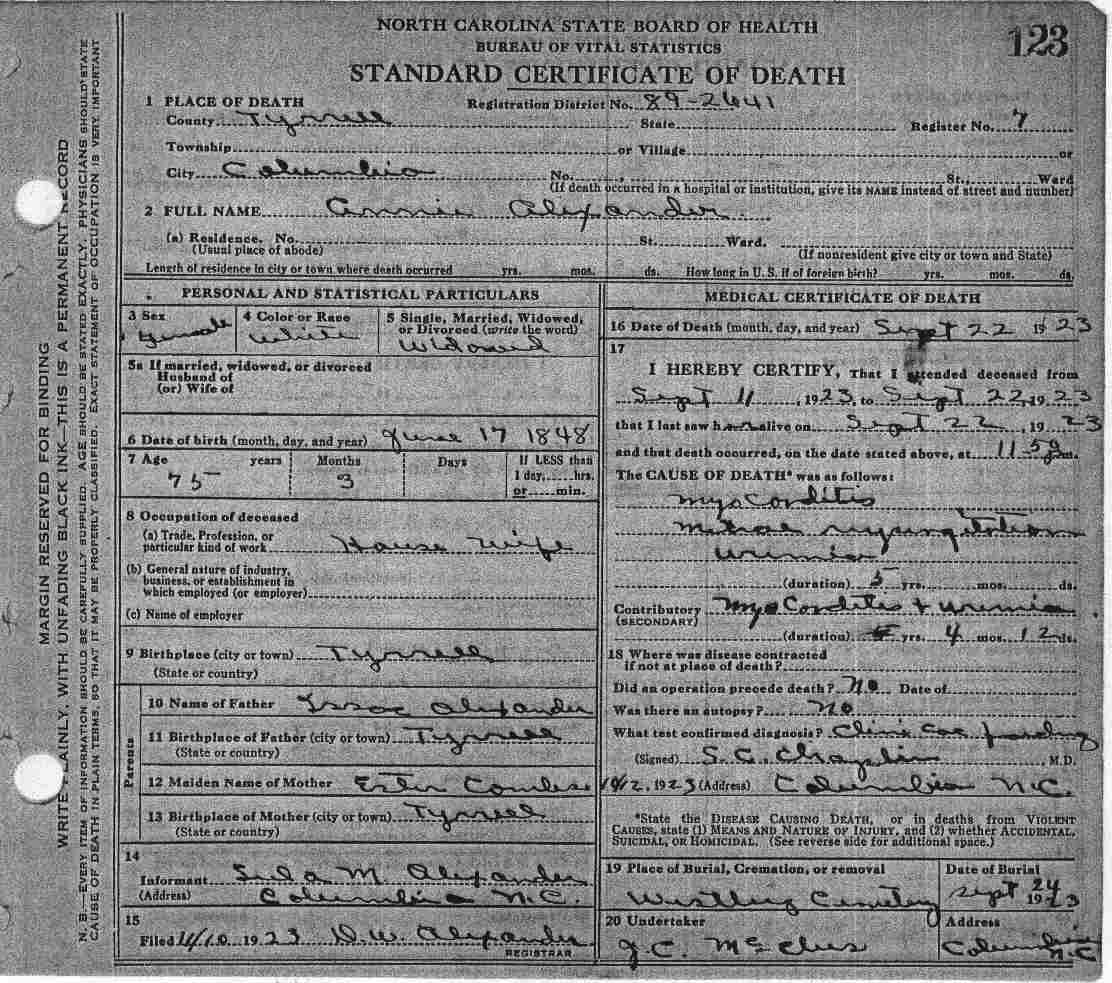 123
NORTH CAROLINA STATE BOARD OF HEALTH
BUREAU OF VITAL STATISTICS
STANDARD CERTIFICATE OF DEATH
1 PLACE OF DEATH Registration District No. 89-2641
County Tyrrell State Register No. 7
Township or Village or
City Columbia No. St., Ward
(If death occurred in a hospital or institution, give its NAME instead of street and number)
2 FULL NAME Annie Alexander
(a) Residence. No. St. Ward.
(Usual place of abode) (If nonresident give city or town and State)
Length of residence in city or town where death occurred yrs. mos. ds. How long in U.S. if of foreign birth? yrs. mos. ds.
PERSONAL AND STATISTICAL PARTICULARS
3 Sex 4 Color or Race 5 Single, Married, Widowed,
or Divorced (write the word)
Female White Widowed
5a If married, widowed, or divorced
Husband of
(or) Wife of
6 Date of birth (month, day, and year) June 17 1848
7 Age years Months Days If LESS than
1 day, hrs.
75 3 or min.
8 Occupation of deceased
(a) Trade, Profession, or
particular kind of work House Wife
(b) General nature of industry,
business, or establishment in
which employed (or employer)
(c) Name of employer
9 Birthplace (city or town) Tyrrell
(State or country)
Parents
10 Name of Father Issac Alexander
11 Birthplace of Father (city or town) Tyrrell
(State or country)
12 Maiden Name of Mother Ester Combs
13 Birthplace of Mother (city or town) Tyrrell
(State or country)
14
Informant M. Alexander
(Address) Columbia N.C.
15
Filed 1923 D.W. Alexander
REGISTRAR
MEDICAL CERTIFICATE OF DEATH
16 Date of Death (month, day, and year) Sept 22 1923
17
I HEREBY CERTIFY, That I attended deceased from
Sept 11, 1923, to Sept 22, 1923
that I last saw her alive on Sept 22, 1923
and that death occurred, on the date stated above, at 11-5 m.
The CAUSE OF DEATH* was as follows:
Myocarditis
Mitral regurgitation
uremia
(duration) 5 yrs. mos. ds.
Contributory Myocarditis + uremia
(SECONDARY)
(duration) yrs. 4 mos. 12 ds.
18 Where was disease contracted
if not at place of death?
Did an operation precede death? No Date of
Was there an autopsy? No
What test confirmed diagnosis? Clinical
(Signed) S.C. Chaplin M.D.
1923 (Address) Columbia N.C.
*State the DISEASE CAUSING DEATH, or in deaths from VIOLENT
CAUSES, state (1) MEANS AND NATURE OF INJURY, and (2) whether ACCIDENTAL,
SUICIDAL, OR HOMICIDAL. (See reverse side for additional space.)
19 Place of Burial, Cremation, or removal Date of Burial
Cemetery Sept 24 1923
20 Undertaker Address
J.C. Columbia N.C.
MARGIN RESERVED FOR BINDING
WRITE PLAINLY, WITH UNFADING BLACK INK—THIS IS A PERMANENT RECORD
N. B.—EVERY ITEM OF INFORMATION SHOULD BE CAREFULLY SUPPLIED. AGE SHOULD BE STATED EXACTLY. PHYSICIANS SHOULD STATE
CAUSE OF DEATH IN PLAIN TERMS, SO THAT IT MAY BE PROPERLY CLASSIFIED. EXACT STATEMENT OF OCCUPATION IS VERY IMPORTANT